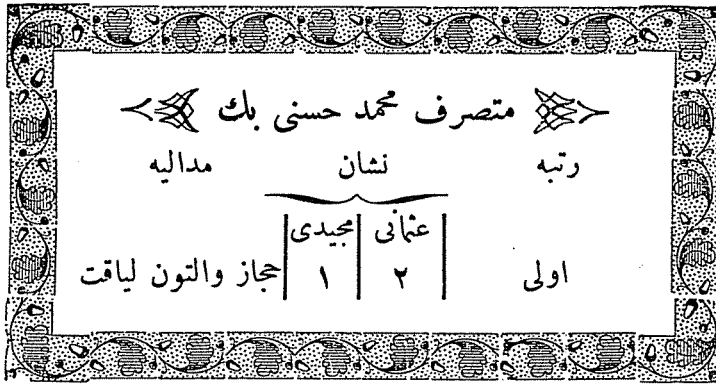 متصرف محمد حسنی بك
رتبه نشان مدالیه
عثمانی مجیدی
اولی ٢ ١ حجاز والتون لیاقت